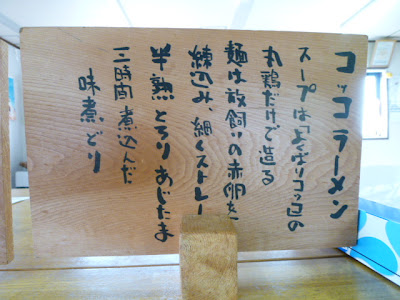 コッコラーメン
スープは「とくばりコッコ」の
丸鶏だけで造る
麺は放飼いの赤卵を
練込み、細くストレー
半熟とろりあじたま
三時間煮込んだ
味煮どり